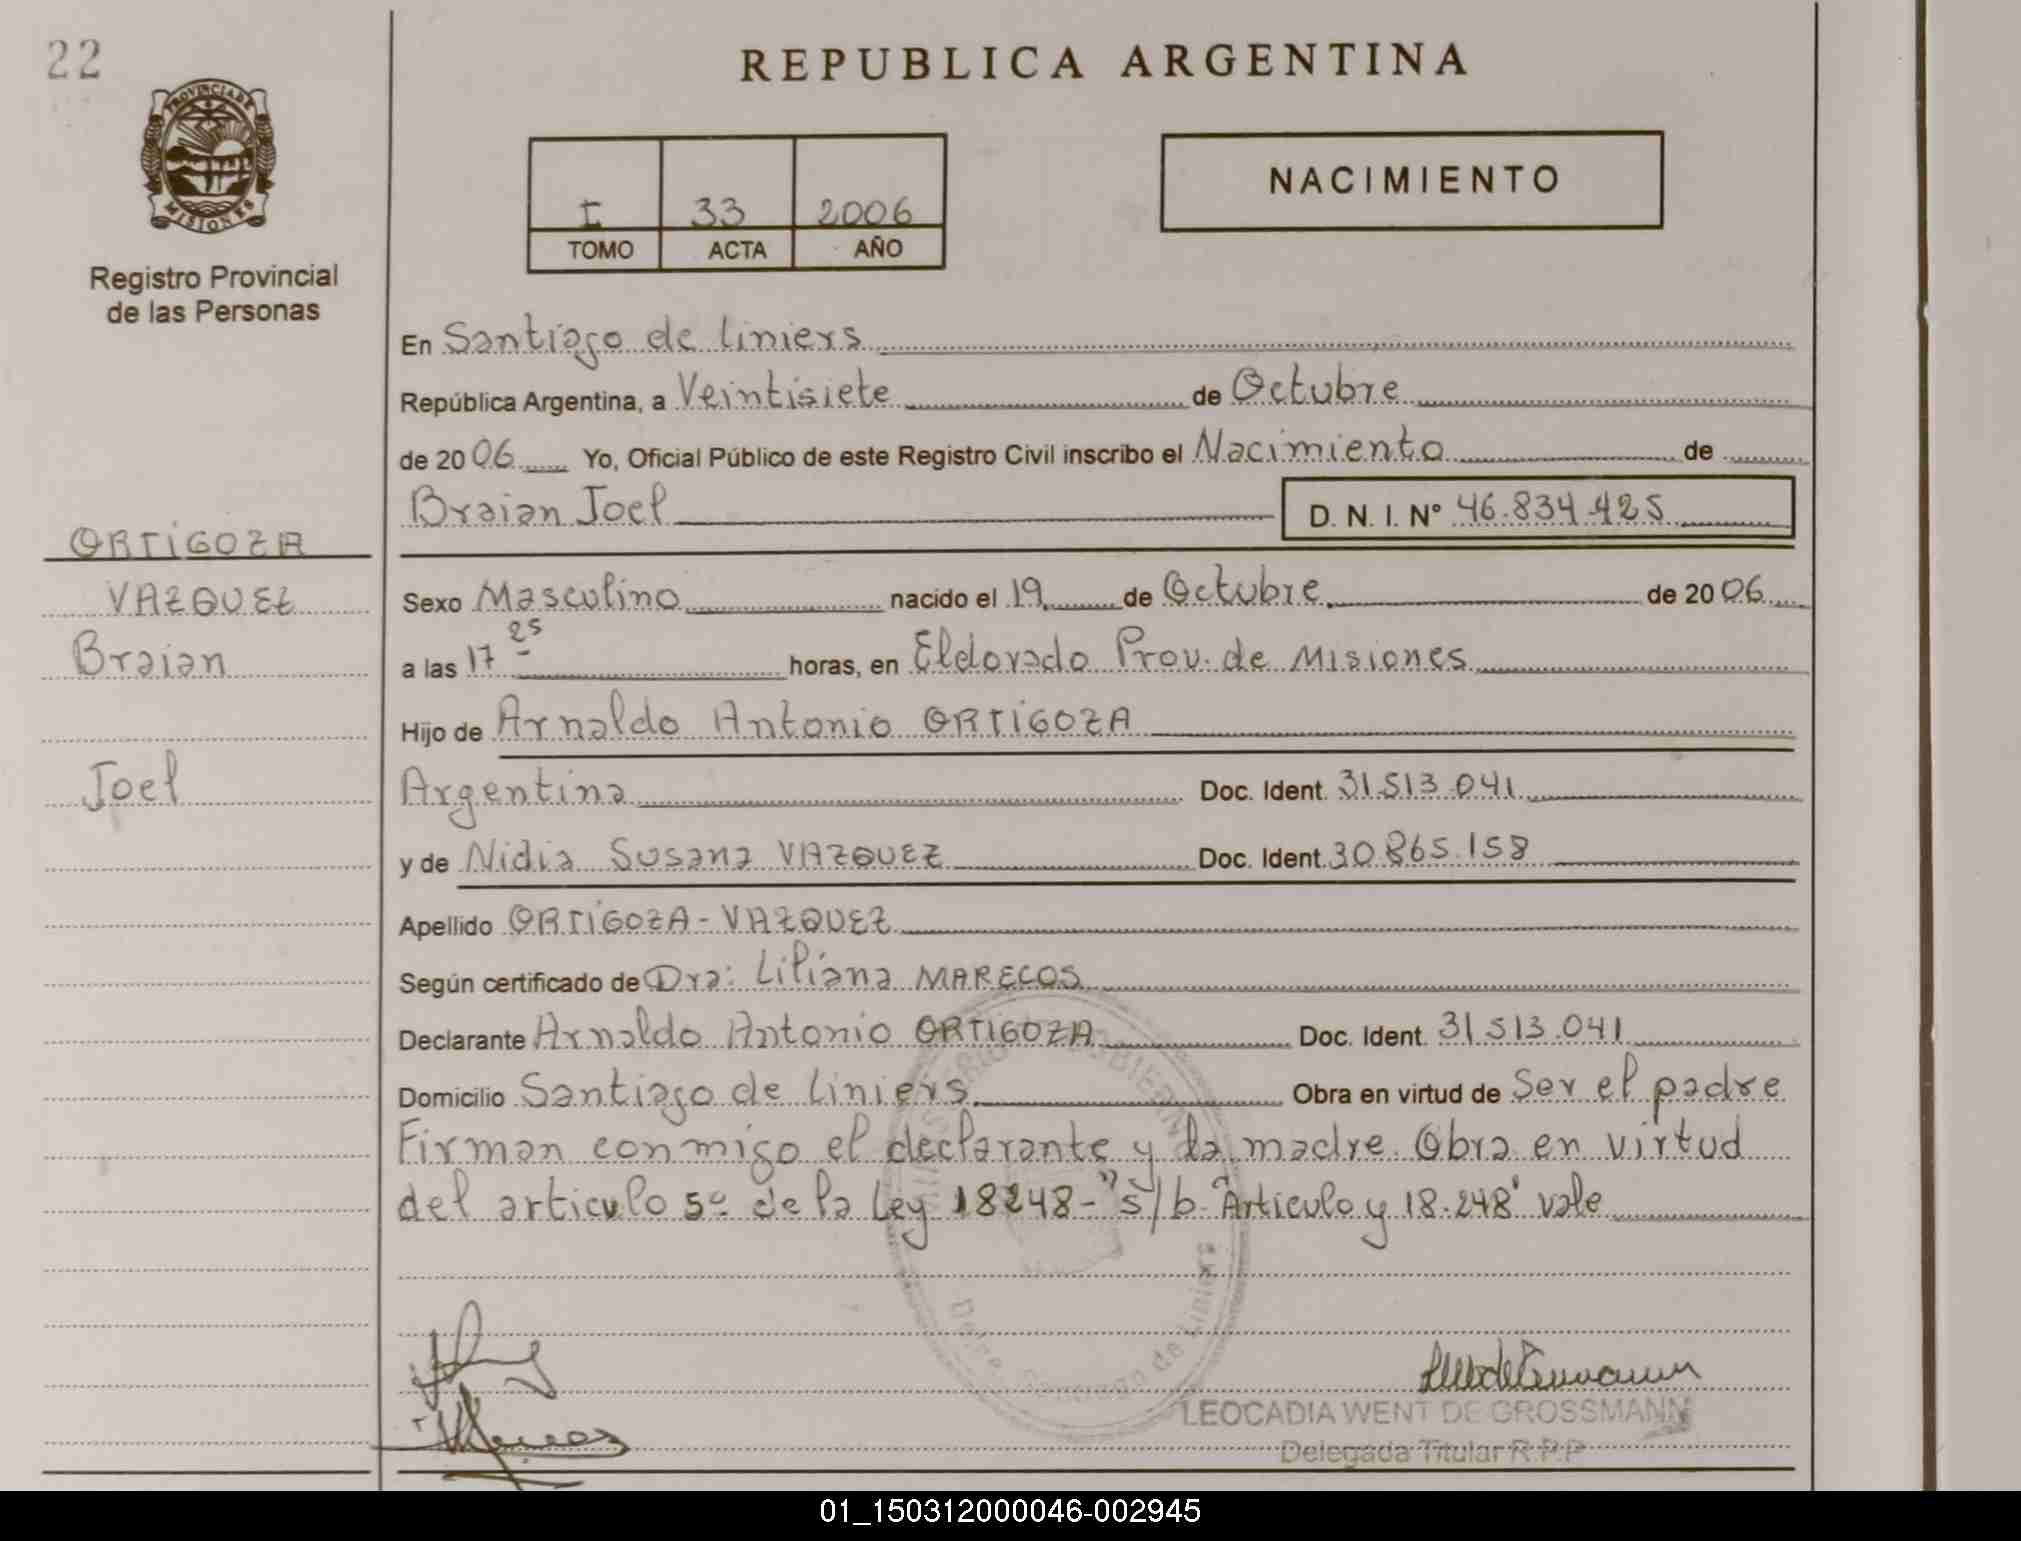 22
PROVINCIA DE
MISIONES
Registro Provincial
de las Personas
REPUBLICA ARGENTINA
I 33 2006
TOMO ACTA AÑO
NACIMIENTO
En Santiago de Liniers
República Argentina, a Veintisiete de Octubre
de 2006 Yo, Oficial Público de este Registro Civil inscribo el Nacimiento de
Braian Joel D. N. I. N° 46.834.425
ORTIGOZA
VAZQUEZ
Braian
Joel
Sexo Masculino nacido el 19 de Octubre de 2006
a las 17 25 horas, en Eldorado Prov. de Misiones
Hijo de Arnaldo Antonio ORTIGOZA
Argentina Doc. Ident. 31.513.041
y de Nidia Susana VAZQUEZ Doc. Ident. 30.865.158
Apellido ORTIGOZA - VAZQUEZ
Según certificado de Dra: Liliana MARECOS
Declarante Arnaldo Antonio ORTIGOZA Doc. Ident. 31.513.041
Domicilio Santiago de Liniers Obra en virtud de Ser el padre
Firman conmigo el declarante y la madre. Obra en virtud
del articulo 5º de la Ley 18248-"s/b "Articulo y 18.248" vale
Santiago de Liniers
LEOCADIA WENT DE GROSSMANN
Delegada Titular R.P.P
01_150312000046-002945